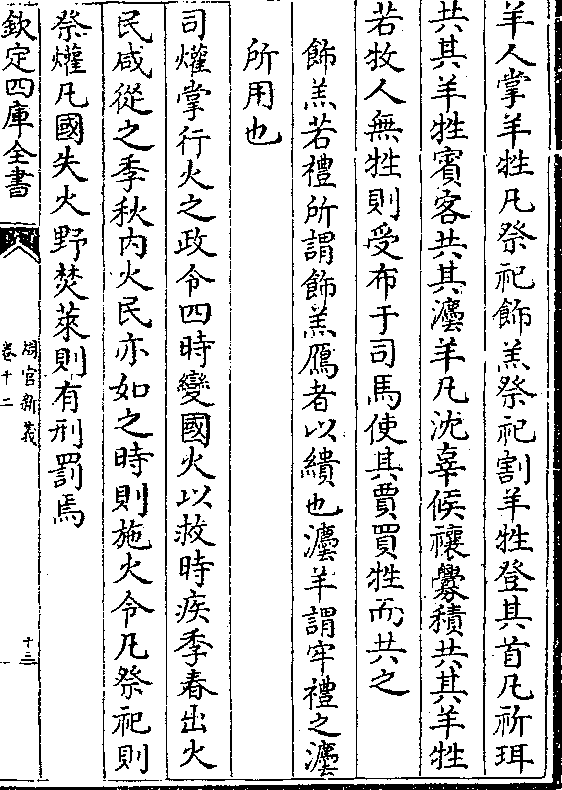 羊人掌羊牲凡祭祀飾羔祭祀割羊牲登其首凡祈珥
共其羊牲賓客共其灋羊凡沈辜候禳釁積共其羊牲
若牧人無牲則受布于司馬使其賈買牲而共之
飾羔若禮所謂飾羔鴈者以繢也灋羊謂牢禮之灋
所用也
司爟掌行火之政令四時變國火以救時疾季春出火
民咸從之季秋内火民亦如之時則施火令凡祭祀則
祭爟凡國失火野焚萊則有刑罰焉
欽定四庫全書
周官新義
卷十二
十三